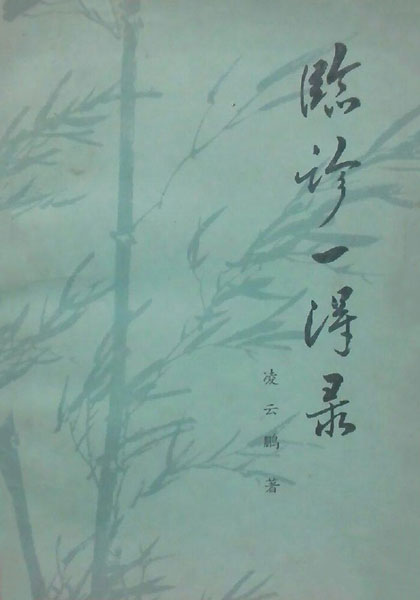 临诊一得录
凌云鹏 著